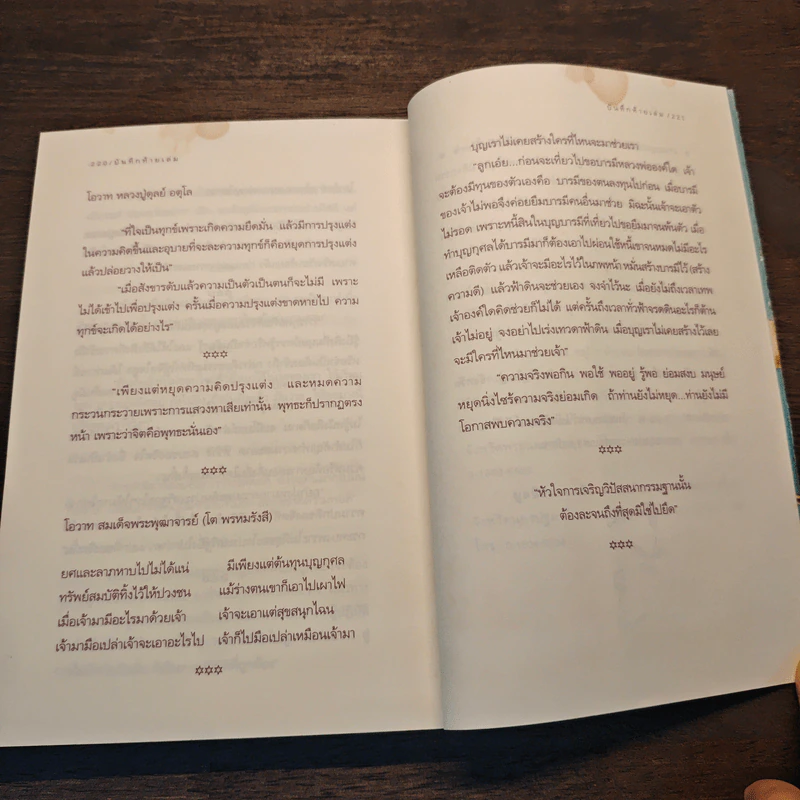 บันทึกด้ายเล่ม
โอวาท หลวงปู่ดุลย์ อตุโล
"ที่ใจเป็นทุกข์เพราะเกิดความยึดมั่น แล้วมีการปรุงแต่ง
ในความคิดขึ้นและอุบายที่จะละความทุกข์ก็คือหยุดการปรุงแต่ง
แล้วปล่อยวางให้เป็น"
"เมื่อสังขารดับแล้วความเป็นตัวเป็นตนก็จะไม่มี เพราะ
ไม่ได้เข้าไปเพื่อปรุงแต่ง ครั้นเมื่อความปรุงแต่งขาดหายไป ความ
ทุกข์จะเกิดได้อย่างไร"
✡✡✡
"เพียงแต่หยุดความคิดปรุงแต่ง และหมดความ
กระวนกระวายเพราะการแสวงหาเสียเท่านั้น พุทธะก็ปรากฏตรง
หน้า เพราะว่าจิตคือพุทธะนั่นเอง"
✡✡✡
โอวาท สมเด็จพระพุฒาจารย์ (โต พรหมรังสี)
ยศและลาภหาบไปไม่ได้แน่ มีเพียงแต่ต้นทุนบุญกุศล
ทรัพย์สมบัติทิ้งไว้ให้ปวงชน แม้ร่างตนเขาก็เอาไปเผาไฟ
เมื่อเจ้ามามีอะไรมาด้วยเจ้า เจ้าจะเอาแต่สุขสนุกไฉน
เจ้ามามือเปล่าเจ้าจะเอาอะไรไป เจ้าก็ไปมือเปล่าเหมือนเจ้ามา
✡✡✡
บุญเราไม่เคยสร้างใครที่ไหนจะมาช่วยเรา
"ลูกเอ๋ย...ก่อนจะเที่ยวไปขอบารมีหลวงพ่อองค์ใด เจ้า
จะต้องมีทุนของตัวเองคือ บารมีของตนลงทุนไปก่อน เมื่อบารมี
ของเจ้าไม่พอจึงค่อยยืมบารมีคนอื่นมาช่วย มิฉะนั้นเจ้าจะเอาตัว
ไม่รอด เพราะหนี้สินในบุญบารมีที่เที่ยวไปขอยืมมาจนพ้นตัว เมื่อ
ทำบุญกุศลได้บารมีมาก็ต้องเอาไปผ่อนใช้หนี้เขาจนหมดไม่มีอะไร
เหลือติดตัว แล้วเจ้าจะมีอะไรไว้ในภพหน้า หมั่นสร้างบารมีไว้ (สร้าง
ความดี) แล้วฟ้าดินจะช่วยเอง จงจำไว้นะ เมื่อยังไม่ถึงเวลาเทพ
เจ้าองค์ใดคิดช่วยก็ไม่ได้ แต่ครั้นถึงเวลาทั่วฟ้าจรดดินอะไรก็ต้าน
เจ้าไม่อยู่ จงอย่าไปเร่งเทวดาฟ้าดิน เมื่อบุญเราไม่เคยสร้างไว้เลย
จะมีใครที่ไหนมาช่วยเจ้า"
"ความจริงพอกิน พอใช้ พออยู่ รู้พอ ย่อมสงบ มนุษย์
หยุดนิ่งไซร้ความจริงย่อมเกิด ถ้าท่านยังไม่หยุด...ท่านยังไม่มี
โอกาสพบความจริง"
✡✡✡
"หัวใจการเจริญวิปัสสนากรรมฐานนั้น
ต้องละจนถึงที่สุดมิใช่ไปยึด"
✡✡✡